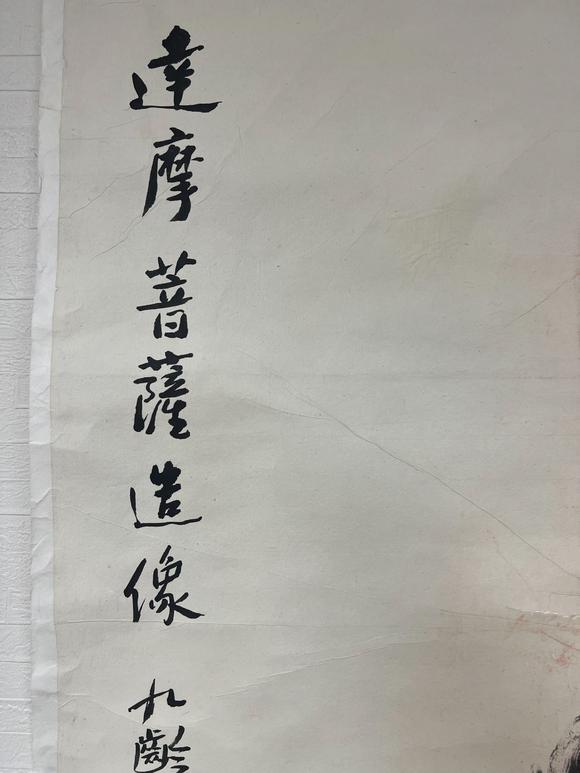 達摩菩薩造像 九齡